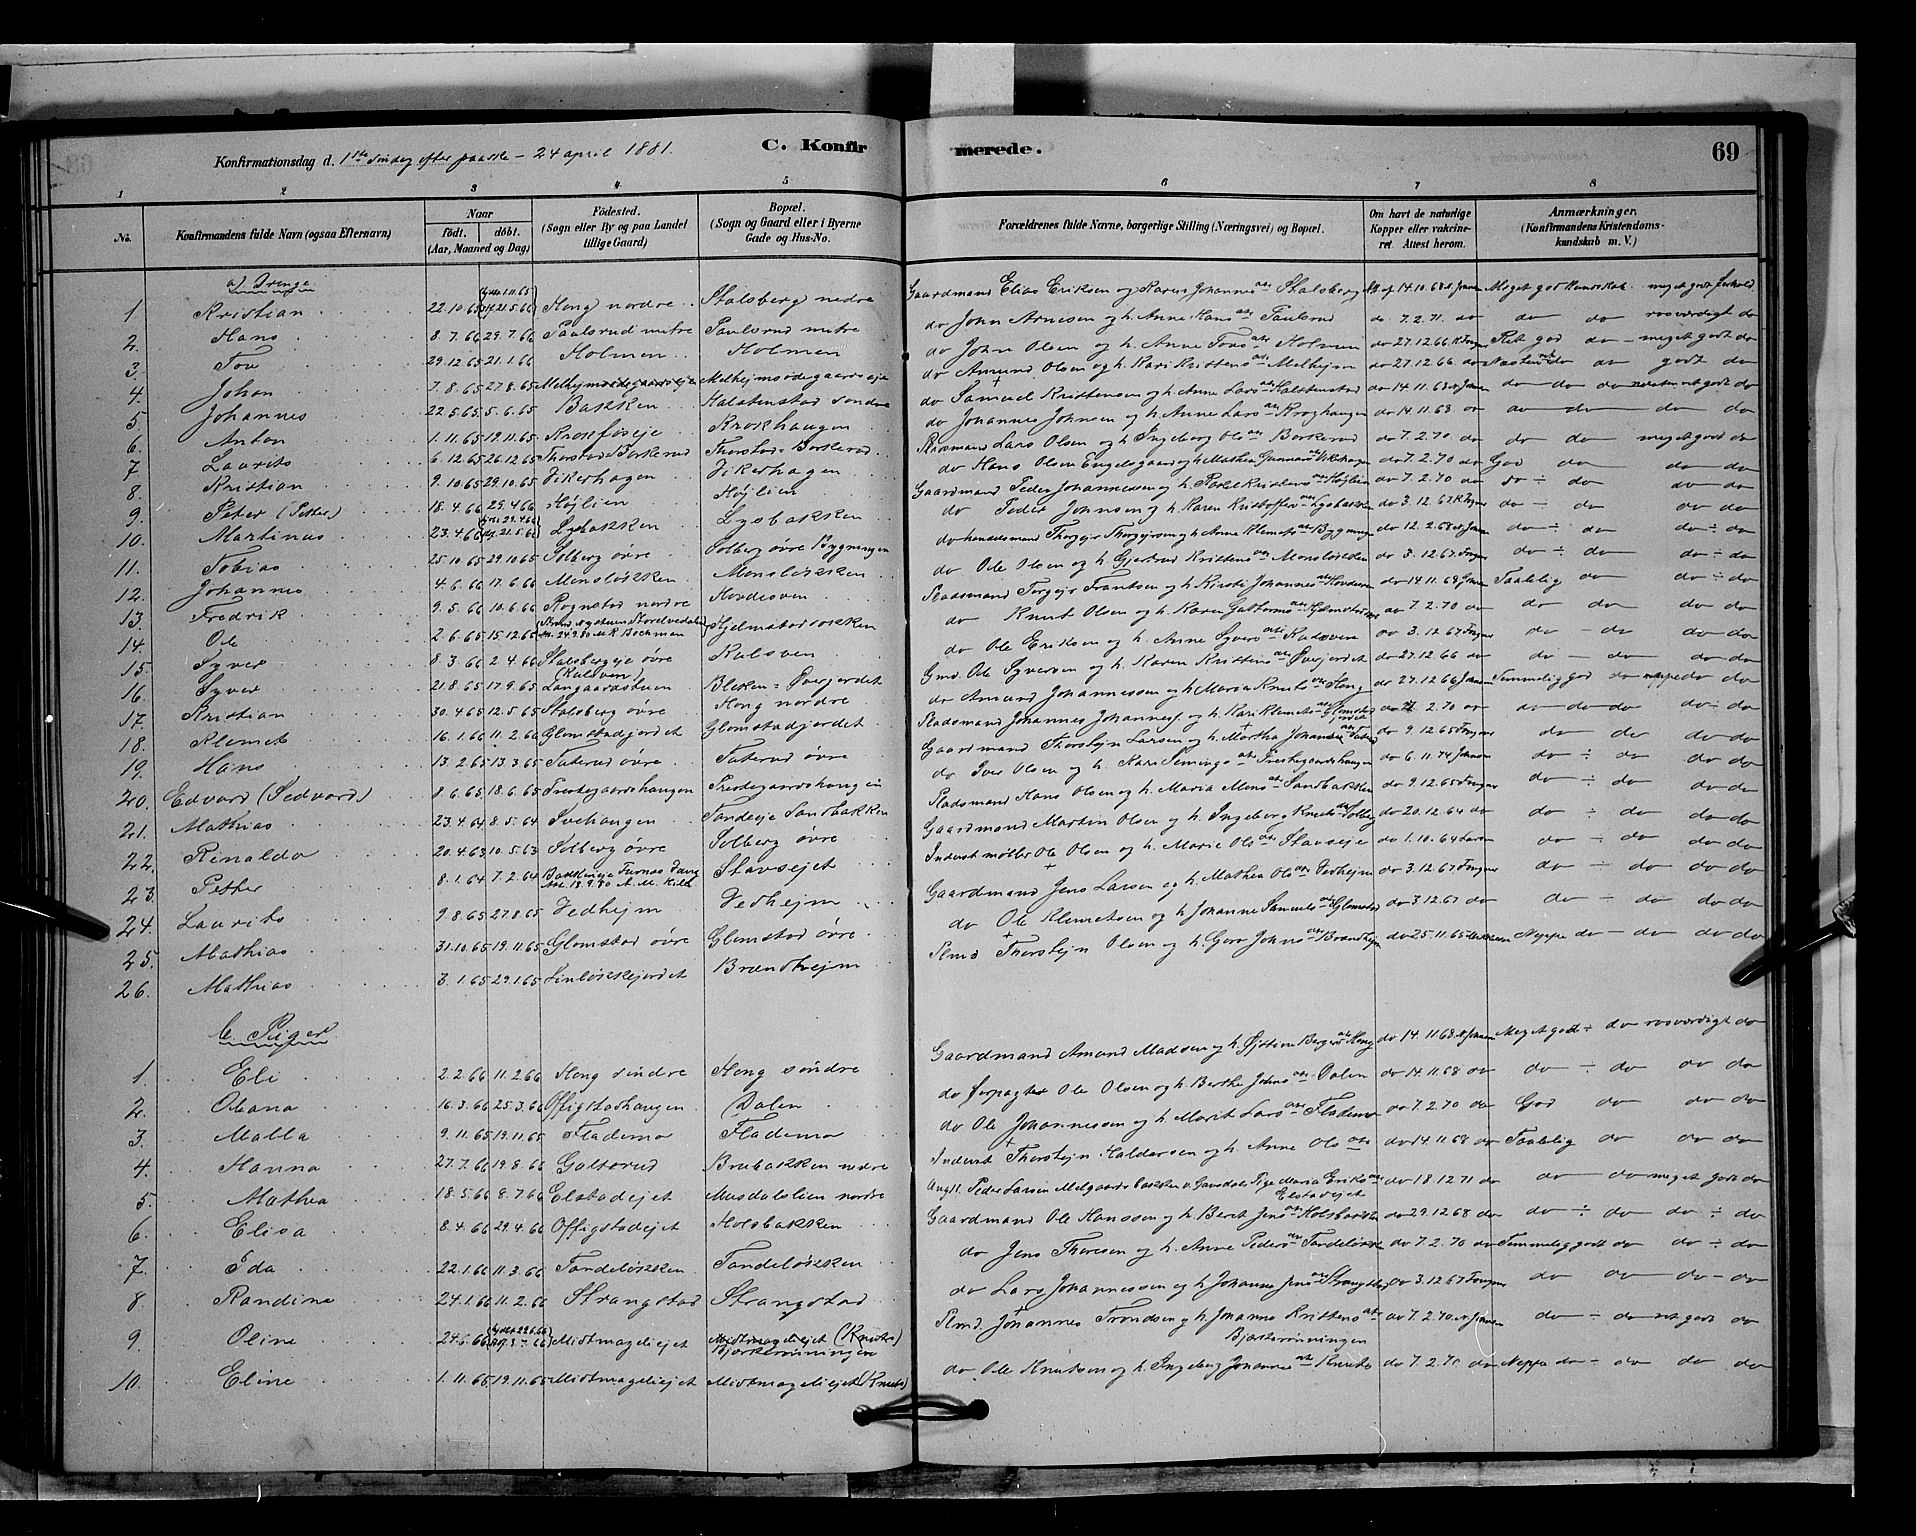 Konfirmationsdag d. 1ste Søndag efter paaske - 24 april 1881.
C. Konfirmerede.
69
1 2 3 4 5 6 7 8
No.
Konfirmandens fulde Navn (ogsaa Efternavn)
Naar født. døbt. (Aar, Maaned og Dag)
Födested. (Sogn eller By og paa Landet tillige Gaard)
Bopæl. (Sogn og Gaard eller i Byerne Gade og Hus-No.
Forældrenes fulde Navne, borgerlige Stilling (Næringsvei) og Bopæl.
Om havt de naturlige Kopper eller vakcineret. Attest herom.
Anmærkninger. (Konfirmandens Kristendomskundskab m. V.)
a) Drenge
1. Kristian 22.10.65 Hong nordre Stalsberg nedre Gaardmand Elias Eriksen og Karen Johannesdtr Stalsberg 14.10.68 Meget god Kundskab meget godt forhold
2. Hans 8.7.66 29.7.66 Paulsrud metre Paulsrud metre do John Arnesen og h. Anne Hansdtr Paulsrud do 7.2.71 do do do rosværdigt do
3. Tov 29.12.65 21.1.66 Holmen Holmen do John Olsen og h. Anne Tovsdtr Holmen do 27.12.66 Ret god do meget godt do
4. Johan 7.8.65 27.8.65 Melhejmsødegaardseje Melhejmsødegaardseje do Amund Olsen og h. Kari Kristensdtr Melhejm do 27.12.66 do do godt do
5. Johannes 22.5.65 5.6.65 Bakken Halstenstad søndre do Samuel Kristensen og h. Anne Larsdtr Halstenstad do 14.11.68 do do do
6. Anton 1.11.65 19.11.65 Krokføseje Krokhaugen do Johannes Johnsen og h. Anne Larsdtr Kroghaugen do 14.11.68 do do do do do
7. Laurits 6.12.65 26.12.65 Thorstad Borkerud Thorstad Borkerud Pladsmand Lars Olsen og h. Ingeborg Olsdtr Borkerud do 7.2.70 do do do meget godt do
8. Kristian 9.10.65 29.10.65 Vikerhagen Vikerhagen do Hans Olsen Engelsgaard og h. Mathea Gunnarsdtr Vikerhagen do 7.2.70 do God do do do
9. Peter (Petter) 18.4.66 29.4.66 Højlien Højlien Gaardmand Peder Johannessen og h. Pordel Kristensdtr Højlien do 7.2.70 do do ÷ do do do
10. Martinus 23.4.66 Lysbakken Lysbakken do Peder Johnsen og h. Karen Kristoffersdtr Lysbakken do 3.12.67 do ÷ do do do
11. Tobias 25.10.65 29.10.65 Solberg øvre Solberg øvre Bygningen do handelsmand Thorgejr Thorgejrsen og h. Anne Klemetsdtr Bygningen do 12.2.68 do ÷ do do ÷ do
12. Johannes 4.6.66 17.6.66 Mensløkken Mensløkken do Ole Olsen og h. Gjertrud Kristensdtr Mensløkken do 3.12.67 do ÷ do do ÷ do
13. Fredrik 9.5.66 10.6.66 Rognstad nordre Hovdesven Pladsmand Torgejr Frantsen og h. Kirsti Johannesdtr Hovdesven do 14.11.68 Taalelig do do ÷ do
14. Ole 2.6.65 15.12.65 Hjelmstadløkken do Knut Olsen og h. Karen Guttormsdtr Hjelmstadløkken do 7.2.70 do do do do do
15. Syver 8.3.66 2.4.66 Stalsbergeje øvre (Kalsven) Kalsven do Ole Eriksen og h. Anne Syversdtr Kalsven do 3.12.67 do - do do do
16. Syver 21.8.65 17.9.65 Langaardstuen Bleken = Øverjordet Gmd. Ole Syversen og h. Karen Kristensdtr Øverjordet do 27.12.66 do do - do do do
17. Kristian 30.4.65 12.5.65 Stalsberg øvre Hong nordre do Amund Johannessen og h. Maria Knutsdtr Hong do 27.12.66 Temmelig god do neppe do do
18. Klemet 16.1.66 11.2.66 Glomstadjordet Glomstadjordet Pladsmand Johannes Johannes. og h. Kari Klemetsdtr Glomstadjordet do 7.2.70 do do do do do ÷ do
19. Hans 13.2.65 13.3.65 Taterud øvre Taterud øvre Gaardmand Thorstejn Larsen og h. Martha Johannesdtr Taterud do 9.12.65 do do do do
20. Edvard (Sedvard) 8.6.65 18.6.65 Prestegaardshaugen Prestegaardshaugen do Iver Olsen og h. Kari Semingsdtr Prestegaardshaugen do 6.11.74 do ÷ do do do
21. Mathias 23.4.64 8.5.64 Svehaugen Tandeeje Sandbakken Pladsmand Hans Olsen og h. Maria Mensdtr Sandbakken do 9.12.65 do ÷ do do do
22. Rinaldo 20.4.63 10.5.63 Solberg øvre Solberg øvre Gaardmand Martin Olsen og h. Ingeborg Knutsdtr Solberg do 20.12.64 do do ÷ do do do
23. Pether 8.1.64 7.2.64 Stavsejet Inderst møller Ole Olsen og h. Marie Olsdtr Stavseje do 1.10.64 Larsen do ÷ do do do
24. Laurits 9.8.65 27.8.65 Vedhejm Vedhejm Gaardmand Jens Larsen og h. Mathea Olsdtr Vedhejm do 3.12.67 do ÷ do do do
25. Mathias 31.10.65 19.11.65 Glomstad øvre Glomstad øvre do Ole Klemetsen og h. Johanne Samuelsdtr Glomstad do 3.12.67 do do - do do do
26. Mathias 3.1.65 29.1.65 Linløkkejordet Brændhejm Plmd Thorstejn Olsen og h. Goro Johnsdtr Brændhejm do 25.11.65 Neppe do - do do do
b. Piger
1. Eli 2.2.66 11.2.66 Hong søndre Hong søndre Gaardmand Amund Madsen og h. Bergersdtr Hong do 14.11.68 Meget god ÷ do rosværdigt do
2. Oliana 16.3.66 25.3.66 Offigstadhaugen Dalen do forpagter Ole Olsen og h. Berthe Johnsdtr Dalen do 14.11.68 do do ÷ do do do
3. Malla 9.11.65 19.11.65 Flademo Flademo do Ole Johannessen og h. Marit Larsdtr Flademo do 7.2.70 do God do do do
4. Hanna 27.7.66 19.8.66 Galterud Brubakken nedre Inderst Thorstejn Haldorsen og h. Anne Olsdtr do 14.11.68 do Taalelig do do do
5. Mathea 18.5.66 8.7.66 Elstadejet Musdalslien nordre Ungk. Peder Larsen Melgaardsbakken v. Gausdal Pige Maria Eriksdtr Elstadejet do 18.12.71 do do do meget godt do
6. Elisa 8.4.66 29.4.66 Offigstadejet Holsbakken Gaardmand Ole Hanssen og h. Berit Jensdtr Holsbakken do 29.12.68 do do ÷ do do ÷ do
7. Ida 22.1.66 11.3.66 Tandeløkken Tandeløkken do Jens Thoresen og h. Anne Pedersdtr Tandeløkken do 7.2.70 do Temmelig godt do do ÷ do
8. Randine 24.1.66 11.2.66 Strangstad Strangstad do Lars Johannessen og h. Johanne Jensdtr Strangstad do 3.12.67 do do do - do
9. Oline 24.6.66 Midtmageliejet Midtmageliejet (Knuts) Bjørkerønningen Plmd. Johannes Trondsen og h. Johanne Kristensdtr Bjørkerønningen do 7.2.70 do ÷ do ret godt do
10. Eline 1.11.65 19.11.65 Midtmageliejet Midtmageliejet (Knuts) do Ole Knutsen og h. Ingeborg Johannesdtr Knuts do 7.2.70 do Neppe do - do do do